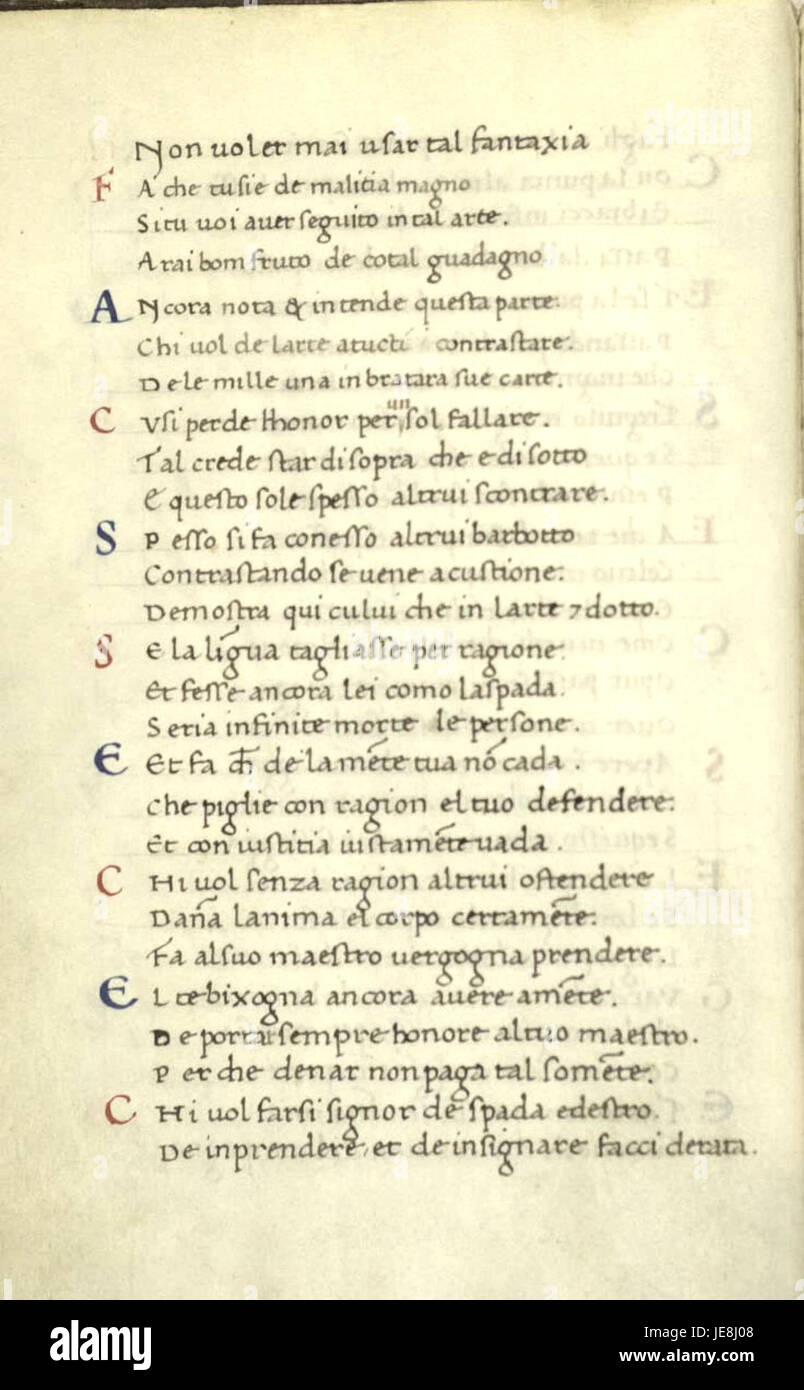 Non uoler mai usar tal fantaxia
FA che tu sie de malitia magno
Si tu uoi auer seguito in tal arte.
Arai bom fruto de cotal guadagno
ANcora nota & intende questa parte:
Chi uol de larte a tucti contrastare.
De le mille una inbratara sue carte.
CVsi perde lhonor per un sol fallare.
Tal crede star di sopra che e di sotto
E questo sole spesso altrui scontrare.
SPesso si fa con esso altrui barbotto
Contrastando se uene a custione:
Demostra qui cului che in larte ⁊ dotto.
SE la līgua tagliasse per ragione:
Et fesse ancora lei como la spada.
Seria infinite morte le persone.
EEt fa ch̄ de la mēte tua nō cada .
Che piglie con ragion el tuo defendere:
Et con iustitia iustamēte uada .
CHi uol senza ragion altrui ostendere
Dan̄a lanima el corpo certamēte:
Fa al suo maestro uergogna prendere.
EL te bixogna ancora auere a mēte.
De portar sempre honore al tuo maestro.
Per che denar non paga tal somēte.
CHi uol farsi signor de spada e destro.
De inprendere et de insignare facci derata.
alamy
Image ID: JE8J08
www.alamy.com